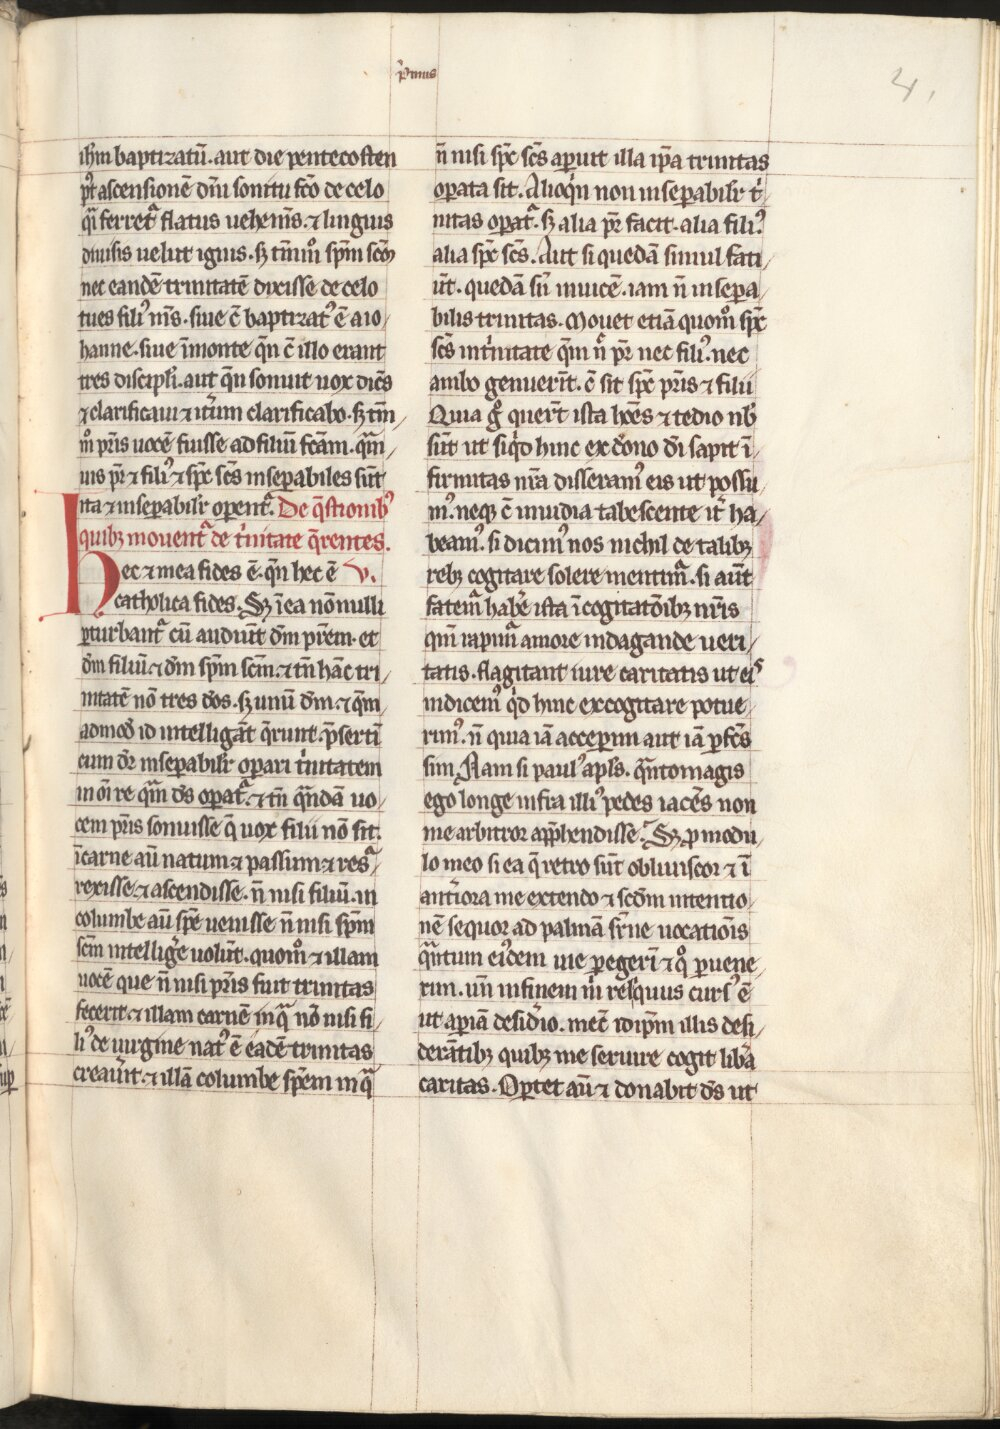 p̄mus
4.
ih̄m baptizatū. aut die pentecosten
p̄t ascensionē dn̄i sonitu fc̄o de celo
q̄i ferretᷓ flatus uehem̄s. ⁊ linguis
diuisis uelut ignis. sꝫ tm̄mͦ spm̄ scm̄
nec eandē trinitatē dixisse de celo
tu es filiꝰ m̄s. siue c̄ baptizatꝰ ē a io/
hanne. siue ī monte qn̄ c̄ illo erant
tres discipłi. aut qn̄ sonuit uox dicēs
⁊ clarificaui ⁊ itm̄ clarificabo. sꝫ tm̄/
mͦ pr̄is uocē fuisse ad filiū fcām. qm̄/
uis pr̄ ⁊ filiꝰ ⁊ spc̄ sc̄s insepabiles sūt
ita ⁊ insepabilr̄ operentᷓ. De q̄stionibꝰ
quibꝫ mouentᷓ de t̍nitate q̄rentes.
Hec ⁊ mea fides ē. qn̄ hec ē V.
catholica fides. Sꝫ ī ea nō nulli
ꝑturbantᷓ cū audiūt dm̄ prēm. et
dm̄ filiū ⁊ dm̄ spm̄ scm̄. ⁊ tn̄ hāc tri/
nitatē nō tres dos. sꝫ unū dm̄. ⁊ qm̄/
admod̄ id intelligāt q̄runt. p̄sertī
cum dr̄ insepabilr̄ operari t̍nitatem
in oī re qm̄ ds̄ operatᷓ. ⁊ tn̄ qn̄dā uo/
cem pr̄is sonuisse q̄ uox filii nō sit.
ī carne aū natum ⁊ passum ⁊ resᷓ/
rexisse ⁊ ascendisse. n̄ nisi filiū. in
columbe aū spē uenisse n̄ nisi spm̄
scm̄ intellig̍e uolūt. quomͦ ⁊ illam
uocē que n̄ nisi pr̄is fuit trinitas
fecerit ⁊ illam carnē in qᷓ nō nisi fi/
liꝰ de uirgine natꝰ ē eadē trinitas
creau̍it. ⁊ illā columbe spēm in qᷓ
n̄ nisi spc̄ sc̄s apuit illa ip̄a trinitas
opata sit. Alioq̍n non insepabilr̄ t̍/
nitas opatᷓ. sꝫ alia pr̄ facit. alia filiꝰ.
alia spc̄ sc̄s. Aut si quedā simul fati/
ūt. quedā sn̄ inuicē. iam n̄ insepa/
bilis trinitas. Mouet etiā quomͦ spc̄
sc̄s in t̍nitate qm̄ nᷓ pr̄ nec filiꝰ. nec
ambo genuerīt. c̄ sit spc̄ pr̄is ⁊ filii
Quia gͦ querūt ista hoēs ⁊ tedio nb̄
sūt ut siq̍d hinc ex dono di sapit ī/
firmitas nr̄a disseramꝰ eis ut possu/
mꝰ. neqꝫ c̄ inuidia tabescente it̍ ha/
beamꝰ. si dicimꝰ nos nichil de talibꝫ
rebꝫ cogitare solere mentimᷓ. si aūt
fatemᷓ hab̍e ista ī cogitatōibꝫ nr̄is
qm̄ rapimᷓ amore indagande ueri/
tatis. flagitant iure caritatis ut eiˢ
indicemꝰ q̍d hinc excogitare potue/
rimꝰ. n̄ quia iā acceperim aut iā ꝑfc̄s
sim. Nam si paulꝰ apls̄. qᷓnto magis
ego longe infra illiꝰ pedes iacēs non
me arbitror app̄hendisse. Sꝫ ꝓ modu/
lo meo si ea q̄ retro sūt obliuiscor ⁊ ī
ant̍iora me extendo ⁊ scd̄m intentio/
nē sequor ad palmā sr̄ne uocatiōis
qᷓntum eiꝰdem uie ꝑegerī ⁊ qͦ ꝑuene/
rim. un̄ in finem m̍ reliquus cursꝰ ē
ut apiā desid̍io. met̄ id ipm̄ illis desi/
derātibꝫ quibꝫ me seruire cogit libᷓa
caritas. Optet aū ⁊ donabit ds̄ ut